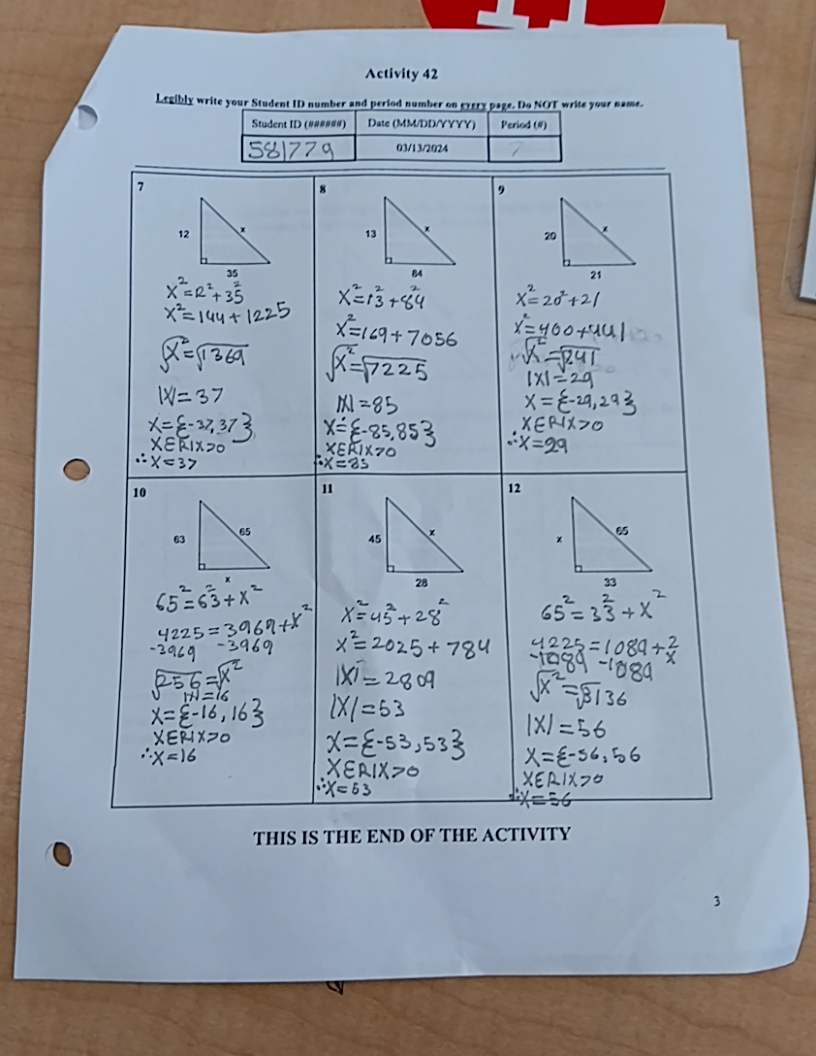 Activity 42
Legibly write your Student ID number and period number on every page. Do NOT write your name.
Student ID (######) Date (MM/DD/YYYY) Period (#)
581779 03/13/2024 7
7
12
x
35
X²=12²+35²
X²=144+1225
√X²=√1369
|X|=37
X={-37,37}
XER|X>0
∴X=37
8
13
x
84
X²=13²+84²
X²=169+7056
√X²=√7225
|X|=85
X={-85,85}
XER|X>0
∴X=85
9
20
x
21
X²=20²+21
X²=400+441
√X²=√241
|X|=29
X={-29,29}
XER|X>0
∴X=29
10
63
65
x
65²=63²+X²
4225=3969+X²
-3969 -3969
√256=√X²
|X|=16
X={-16,16}
XER|X>0
∴X=16
11
45
x
28
X²=45²+28²
X²=2025+784
|X|=2809
|X|=53
X={-53,53}
XER|X>0
∴X=53
12
x
65
33
65²=33²+X²
4225=1089+X²
-1089 -1089
√X²=√3136
|X|=56
X={-56,56
XER|X>0
∴X=56
THIS IS THE END OF THE ACTIVITY
3